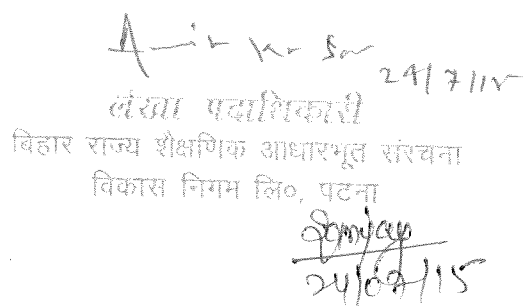 Amir Kr
24/7/15
लेखा पदाधिकारी
बिहार राज्य शैक्षणिक आधारभूत संरचना
विकास निगम लि०, पटना
Sanjay
24/07/15